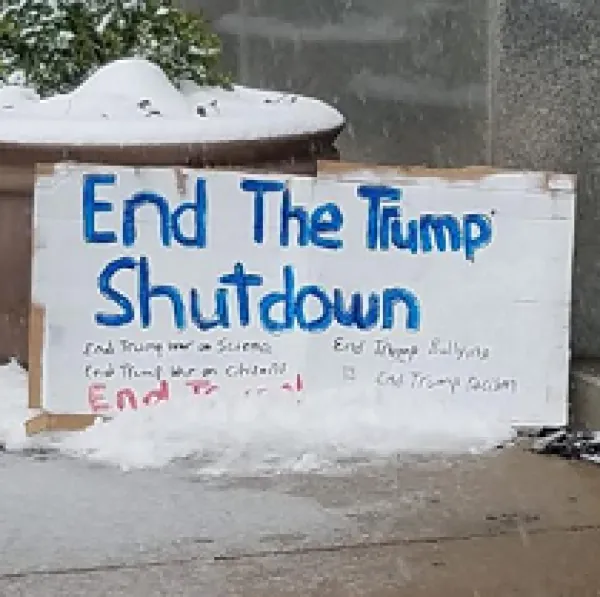 End The Trump
Shutdown
End Trump War on Science
End Trump War on
End Trump Bullying
End Trump racism
End